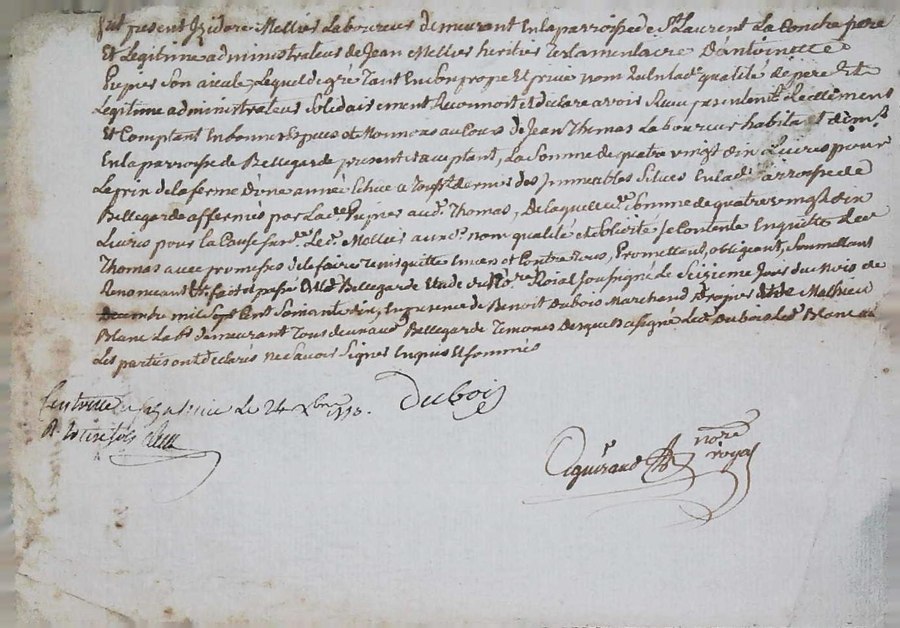 fut présent Izidore Mellier Laboureur demeurant En la parroisse de St Laurent La Conche pere
Et Legitime administrateur de Jean Mellier heritier testamentaire D'antoinette
Pupier Son aieule, Lequel de gré tant En Son propre Et privé nom qu'En lad. qualité de pere Et
Legitime administrateur Solidairement Reconnoit et declare avoir Receu presentemt. Reellement
Et Comptant En bonnes Especes et Monnoies au Cours de Jean Thomas Laboureur habitant et dem.t
En la parroisse de Bellegarde present et acceptant, La Somme de quatre vingt dix Livres pour
Le prix de la ferme d'une année Echue a des Immeubles Situés En lad. parroisse de
Bellegarde affermés par Lad. Pupier aud. Thomas, De laquelle Somme de quatre vingt dix
Livres pour la Cause susd. Led. Mellier auxd. nom qualité et Solidité Se Contente En quitte Led.
Thomas avec promesse de le faire tenir quitte Envers et Contre tous, Promettant, obligeant, Soumettant
Renonceant &c. fait et passé aud. Bellegarde Etude du No.re Roial Soussigné Le Seizieme Jour du Mois de
Decembre mil Sept Cent Soixante dix, En presence de Benoit Dubois Marchand et de Mathieu
Blanc Lab.r demeurant tous deux aud. Bellegarde temoins Desquels a Signé Led. Dubois Led. Blanc
Les parties ont declarés ne Savoir Signer Enquis Et Sommés
Dubois
Controllé a Le 24 Xbre 1770.
R.
Eguiraud no.re royal